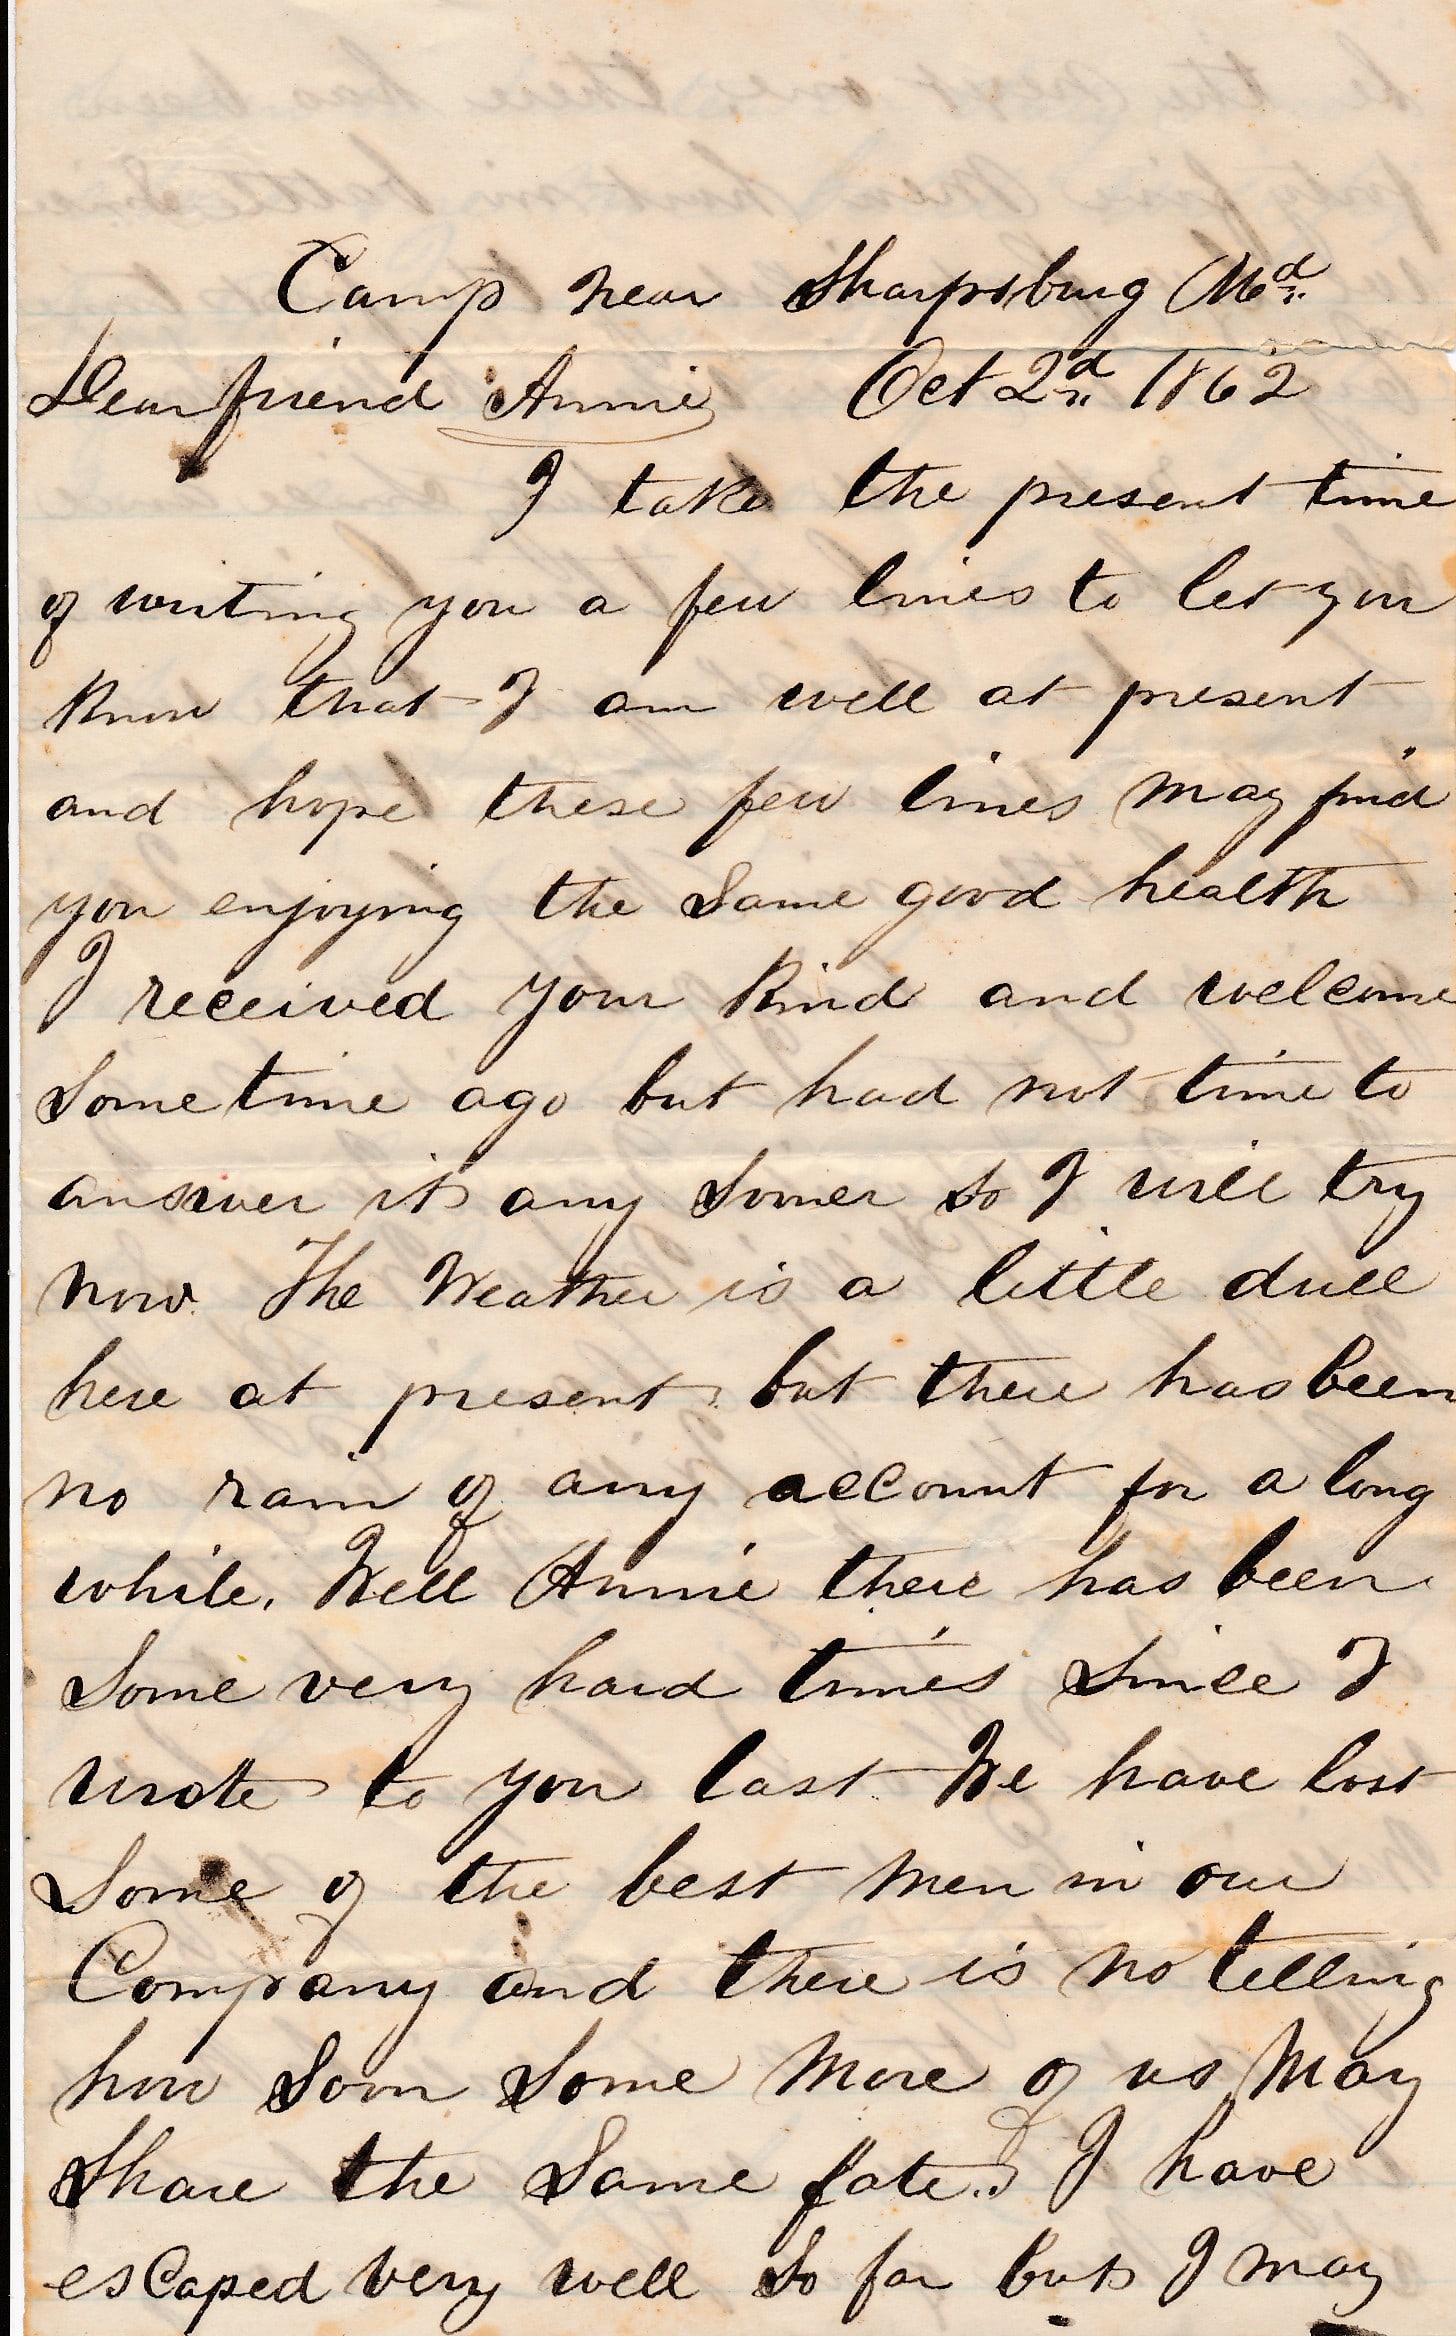 Camp near Sharpsburg Md
Dear friend Annie Oct 2d 1862
I take the present time
of writing you a few lines to let you
know that I am well at present
and hope these few lines may find
you enjoying the same good health
I received your kind and welcome
some time ago but had not time to
answer it any sooner so I will try
now. The Weather is a little dull
here at present but there has been
no rain of any account for a long
while. Well Annie there has been
Some very hard times since I
wrote to you last We have lost
Some of the best men in our
Company and there is no telling
how soon some more of us may
Share the same fate.. I have
escaped very well so far but I may